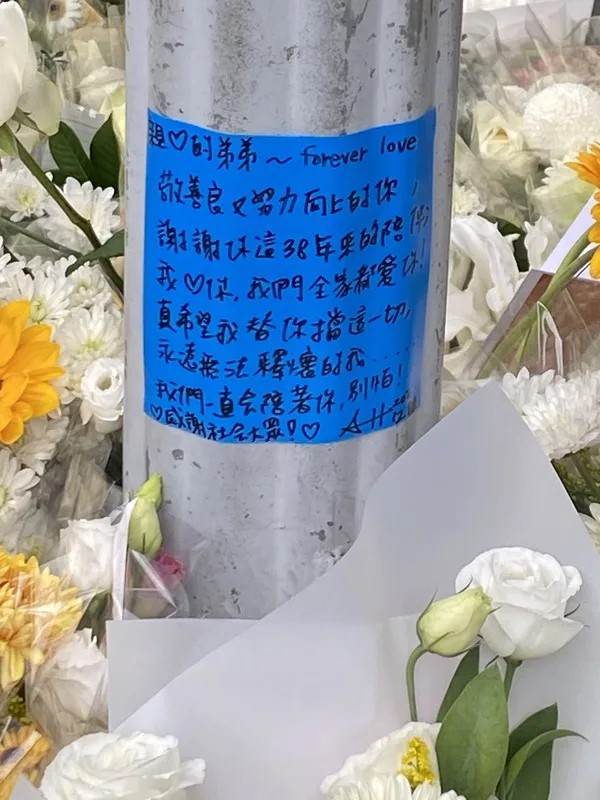 親♡的弟弟～forever love
敬善良又努力向上的你，
謝謝你這38年來的陪伴，
我♡你,我們全家都愛你！
真希望我替你擋這一切，
永遠無法釋懷的我......
我們一直會陪著你,別怕！
♡感謝社会大眾！♡